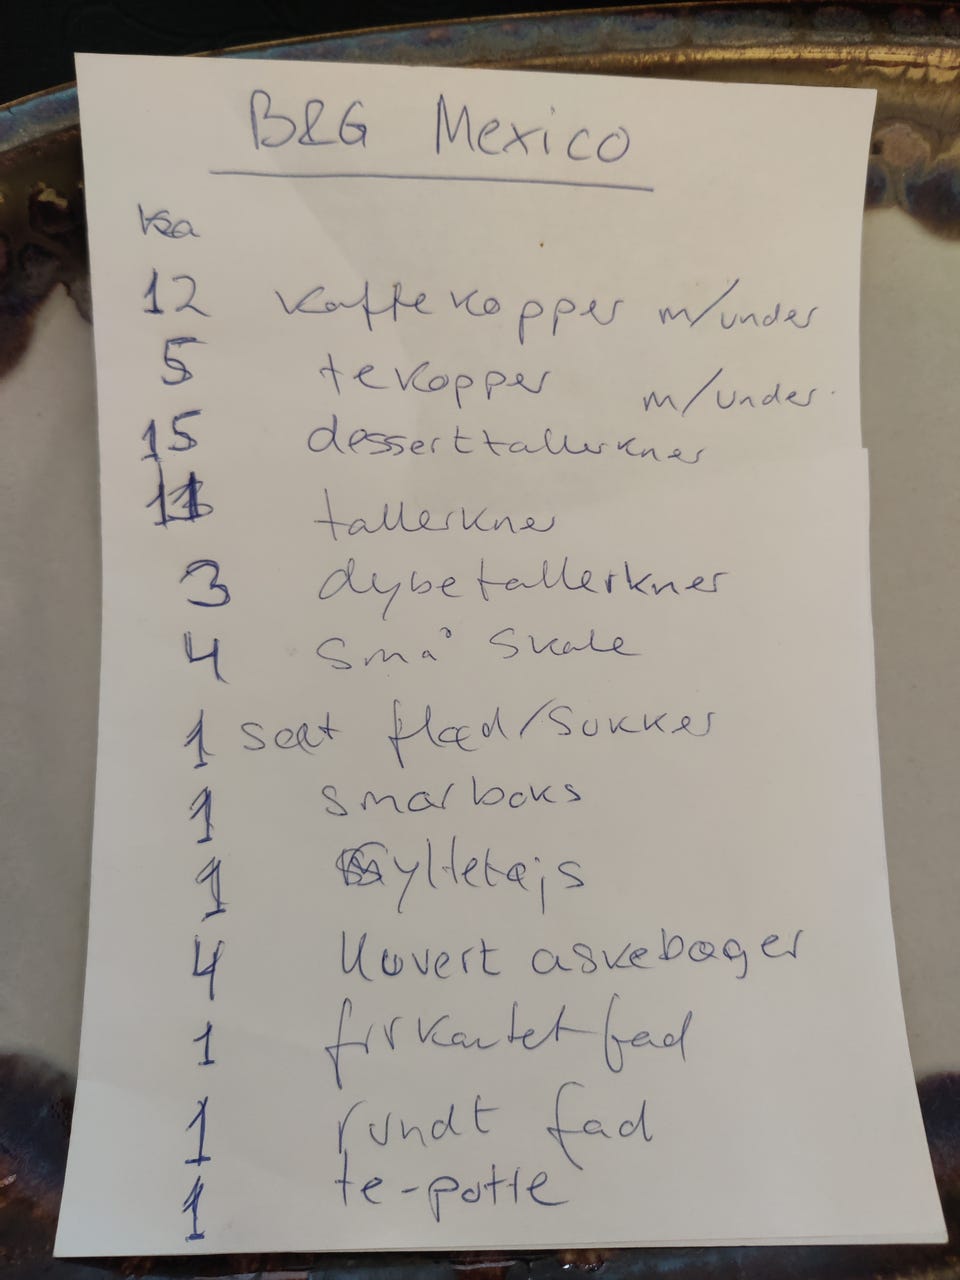 B&G Mexico
12 kaffekopper m/under
5 tekopper m/under
15 desserttallerkner
tallerkner
3 dybetallerkner
4 små skåle
1 sæt fløde/sukker
1 smørboks
1 Syltetøjs
4 kuvert askebæger
1 firkantet fad
1 rundt fad
1 te-potte